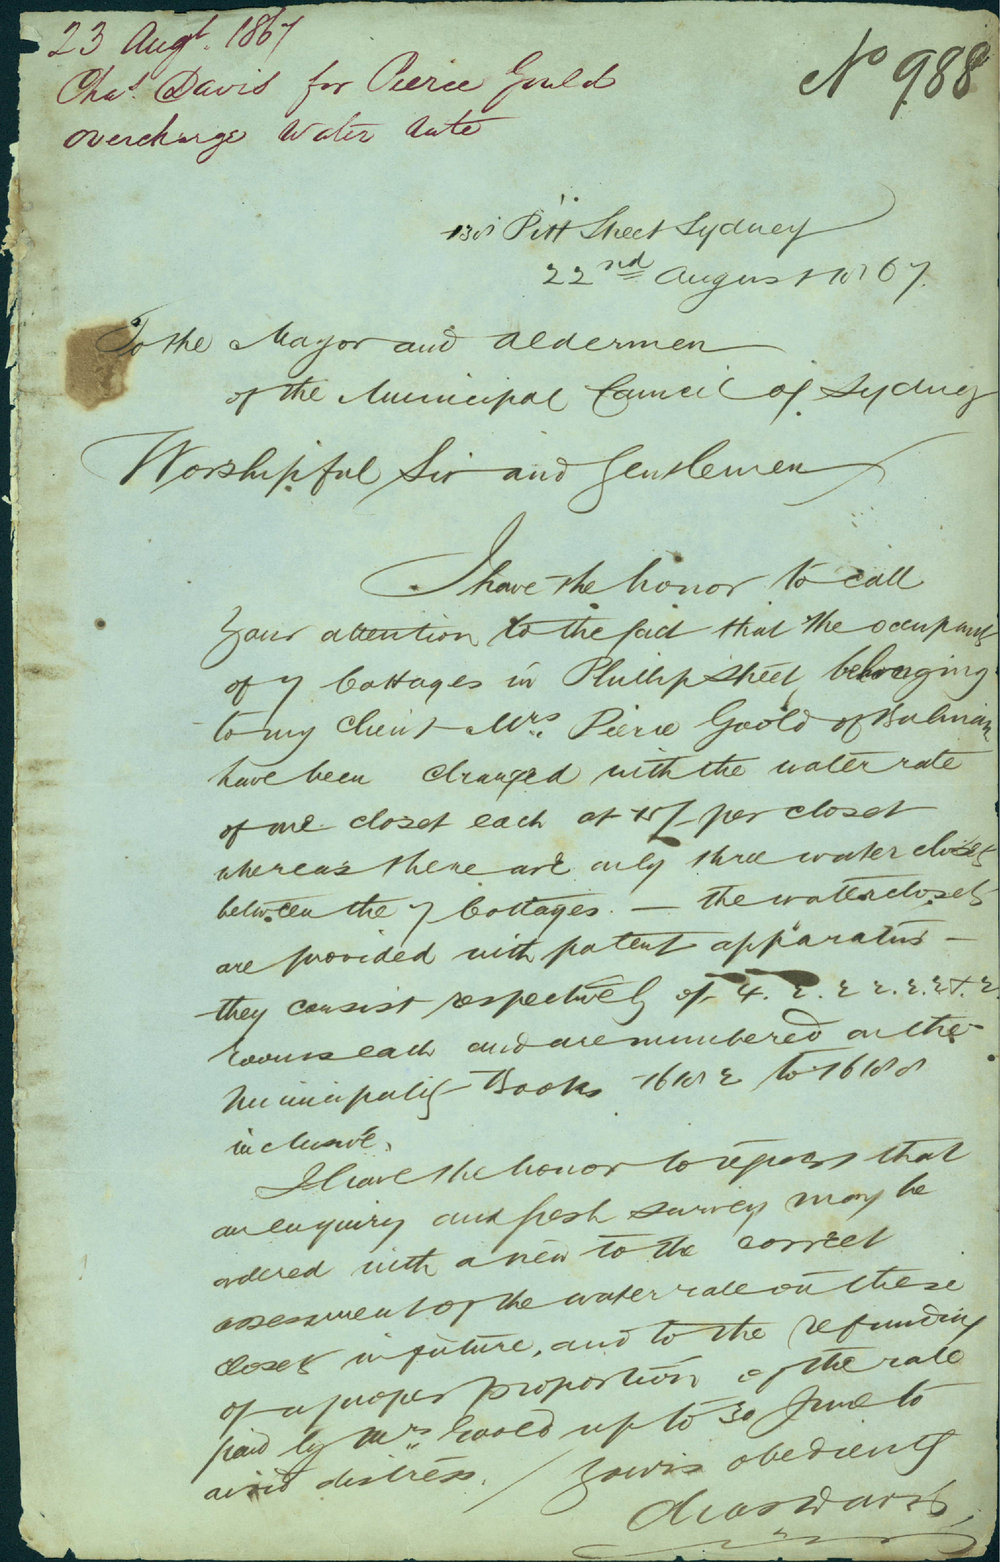 23 Augt. 1867
Chas. Davis for Pierce Gould
overcharge Water Rate
No 988
Pitt Street Sydney
22nd August 1867.
To the Mayor and Aldermen
of the Municipal Council of Sydney
Worshipful Sir and Gentlemen
I have the honor to call
your attention to the fact that the occupants
of 7 Cottages in Phillip Street belonging
to my client Mrs. Pierce Goold of Balmain
have been charged with the water rate
of one closet each at 15/- per closet
whereas there are only three water closets
between the 7 Cottages. — the water closets
are provided with patent apparatus —
they consist respectively of 4. 2. 2 2. 2. 2 &. 2.
rooms each and are numbered on the
Municipality Books 1682 to 1688
inclusive.
I have the honor to request that
an enquiry and fresh survey may be
ordered with a view to the correct
assessment of the water rate on these
closets in future, and to the refunding
of a proper proportion of the rate
paid by Mrs. Goold up to 30 June to
avoid distress. / Yours obediently
Chas Davis,